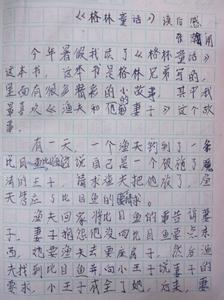 《格林童话》读后感
今年暑假我读了《格林童话》
这本书，这本书是格林兄弟写的，
里面有很多精彩的小故事，其中我
最喜欢《渔夫和他的妻子》这个故
事。
有一天，一个渔夫钓到了一条
比目鱼说自己是一个被施了魔
法的王子，请求渔夫把他放了，渔
夫答应了比目鱼的要求。
渔夫回家将比目鱼的事告诉妻
子，妻子
西，他要渔夫去要座房子，然后渔
夫找到比目鱼并向小王子说妻子的
要求，小王子成全了她，后来，妻